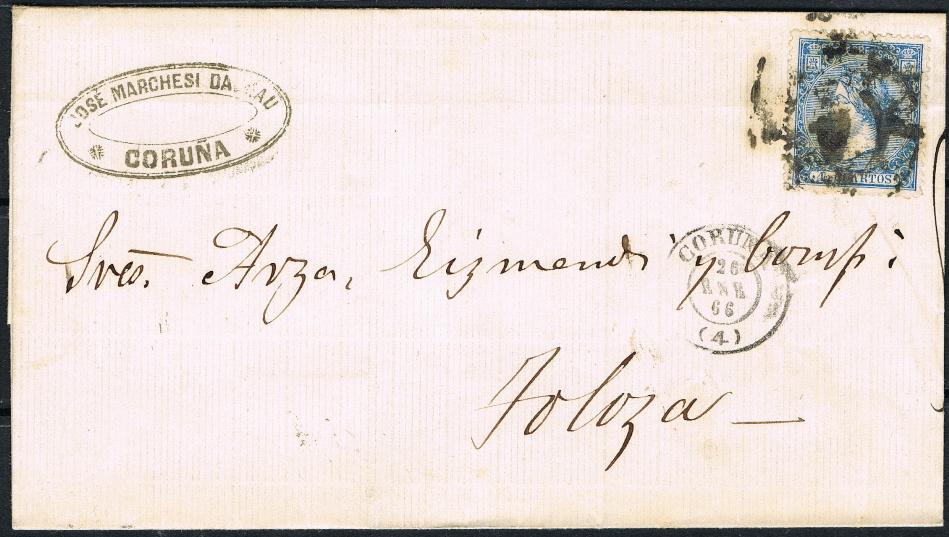 JOSÉ MARCHESI DALMAU
CORUÑA
CUARTOS
Sres. Arza, Eizmendi y Compª.
CORUÑA
26
ENE
66
(4)
Toloza